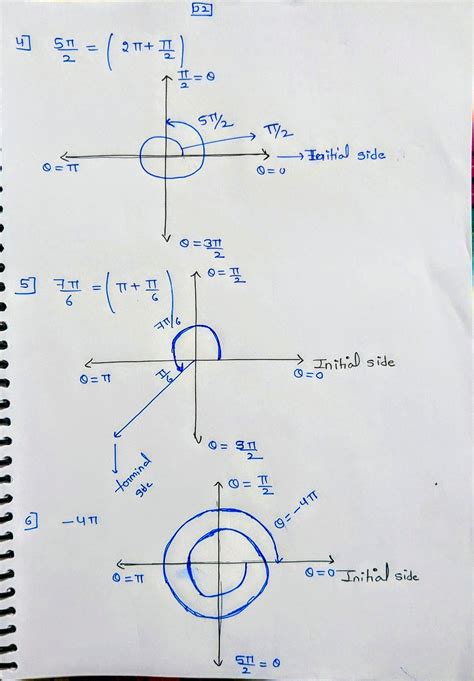 22
4] 5π/2 = (2π + π/2)
π/2 = θ
5π/2
π/2
→ Initial side
θ = π
θ = 0
θ = 3π/2
5] 7π/6 = (π + π/6)
θ = π/2
7π/6
Initial side
θ = π
π/6
θ = 0
θ = 3π/2
terminal
side
6] -4π
θ = π/2
θ = -4π
θ = π
θ = 0 Initial side
5π/2 = θ